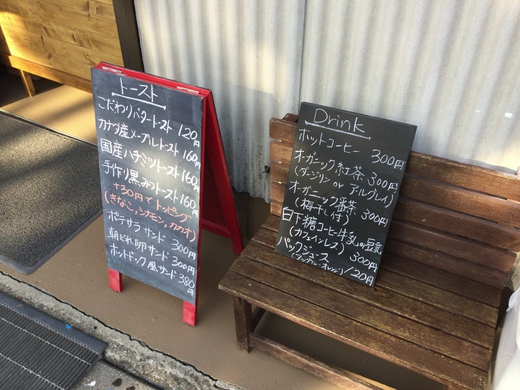 トースト
こだわりバタートースト 120円
カナダ産メープルトースト 160円
国産ハチミツトースト 160円
手作り黒みつトースト 160円
+30円でトッピング
(きなこ、シナモン、カカオ)
ポテサラ サンド 300円
朝どれ卵サンド 300円
ホットドック風サンド 380円
Drink
ホットコーヒー 300円
オーガニック紅茶 300円
(ダージリン or アールグレイ)
オーガニック番茶 300円
(梅干し付)
白下糖コーヒー牛乳
(カフェインレス) 300円
パックジュース
120円